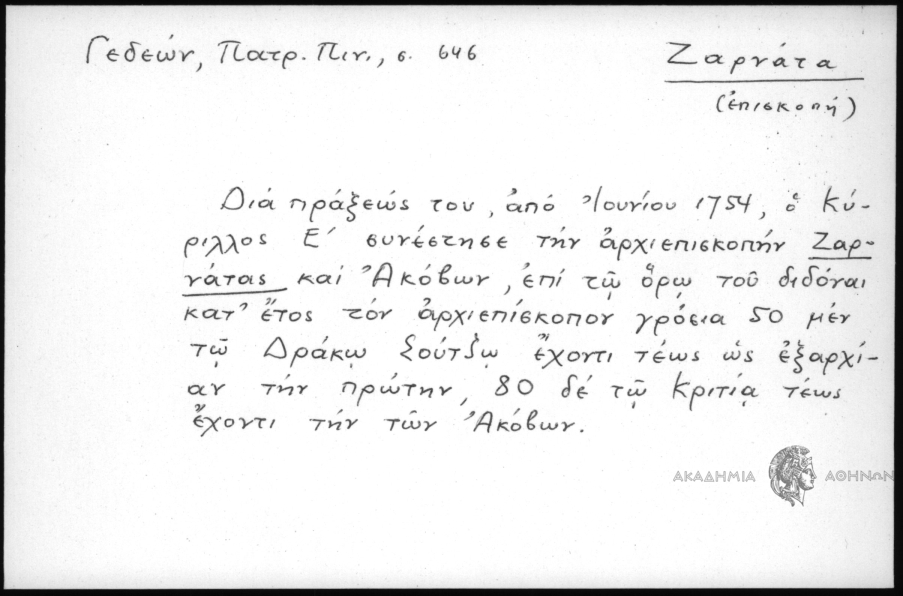 Γεδεών, Πατρ. Πιν., σ. 646
Ζαρνάτα
(ἐπισκοπή)
Διά πράξεώς του, ἀπό Ἰουνίου 1754, ὁ Κύ-
ριλλος Ε' συνέστησε τήν ἀρχιεπισκοπήν Ζαρ-
νάτας καί Ἀκόβων, ἐπί τῷ ὅρῳ τοῦ διδόναι
κατ' ἔτος τόν ἀρχιεπίσκοπον γρόσια 50 μέν
τῷ Δράκῳ Σούτζῳ ἔχοντι τέως ὡς ἐξαρχί-
αν τήν πρώτην, 80 δέ τῷ Κριτίᾳ τέως
ἔχοντι τήν τῶν Ἀκόβων.
ΑΚΑΔΗΜΙΑ ΑΘΗΝΩΝ